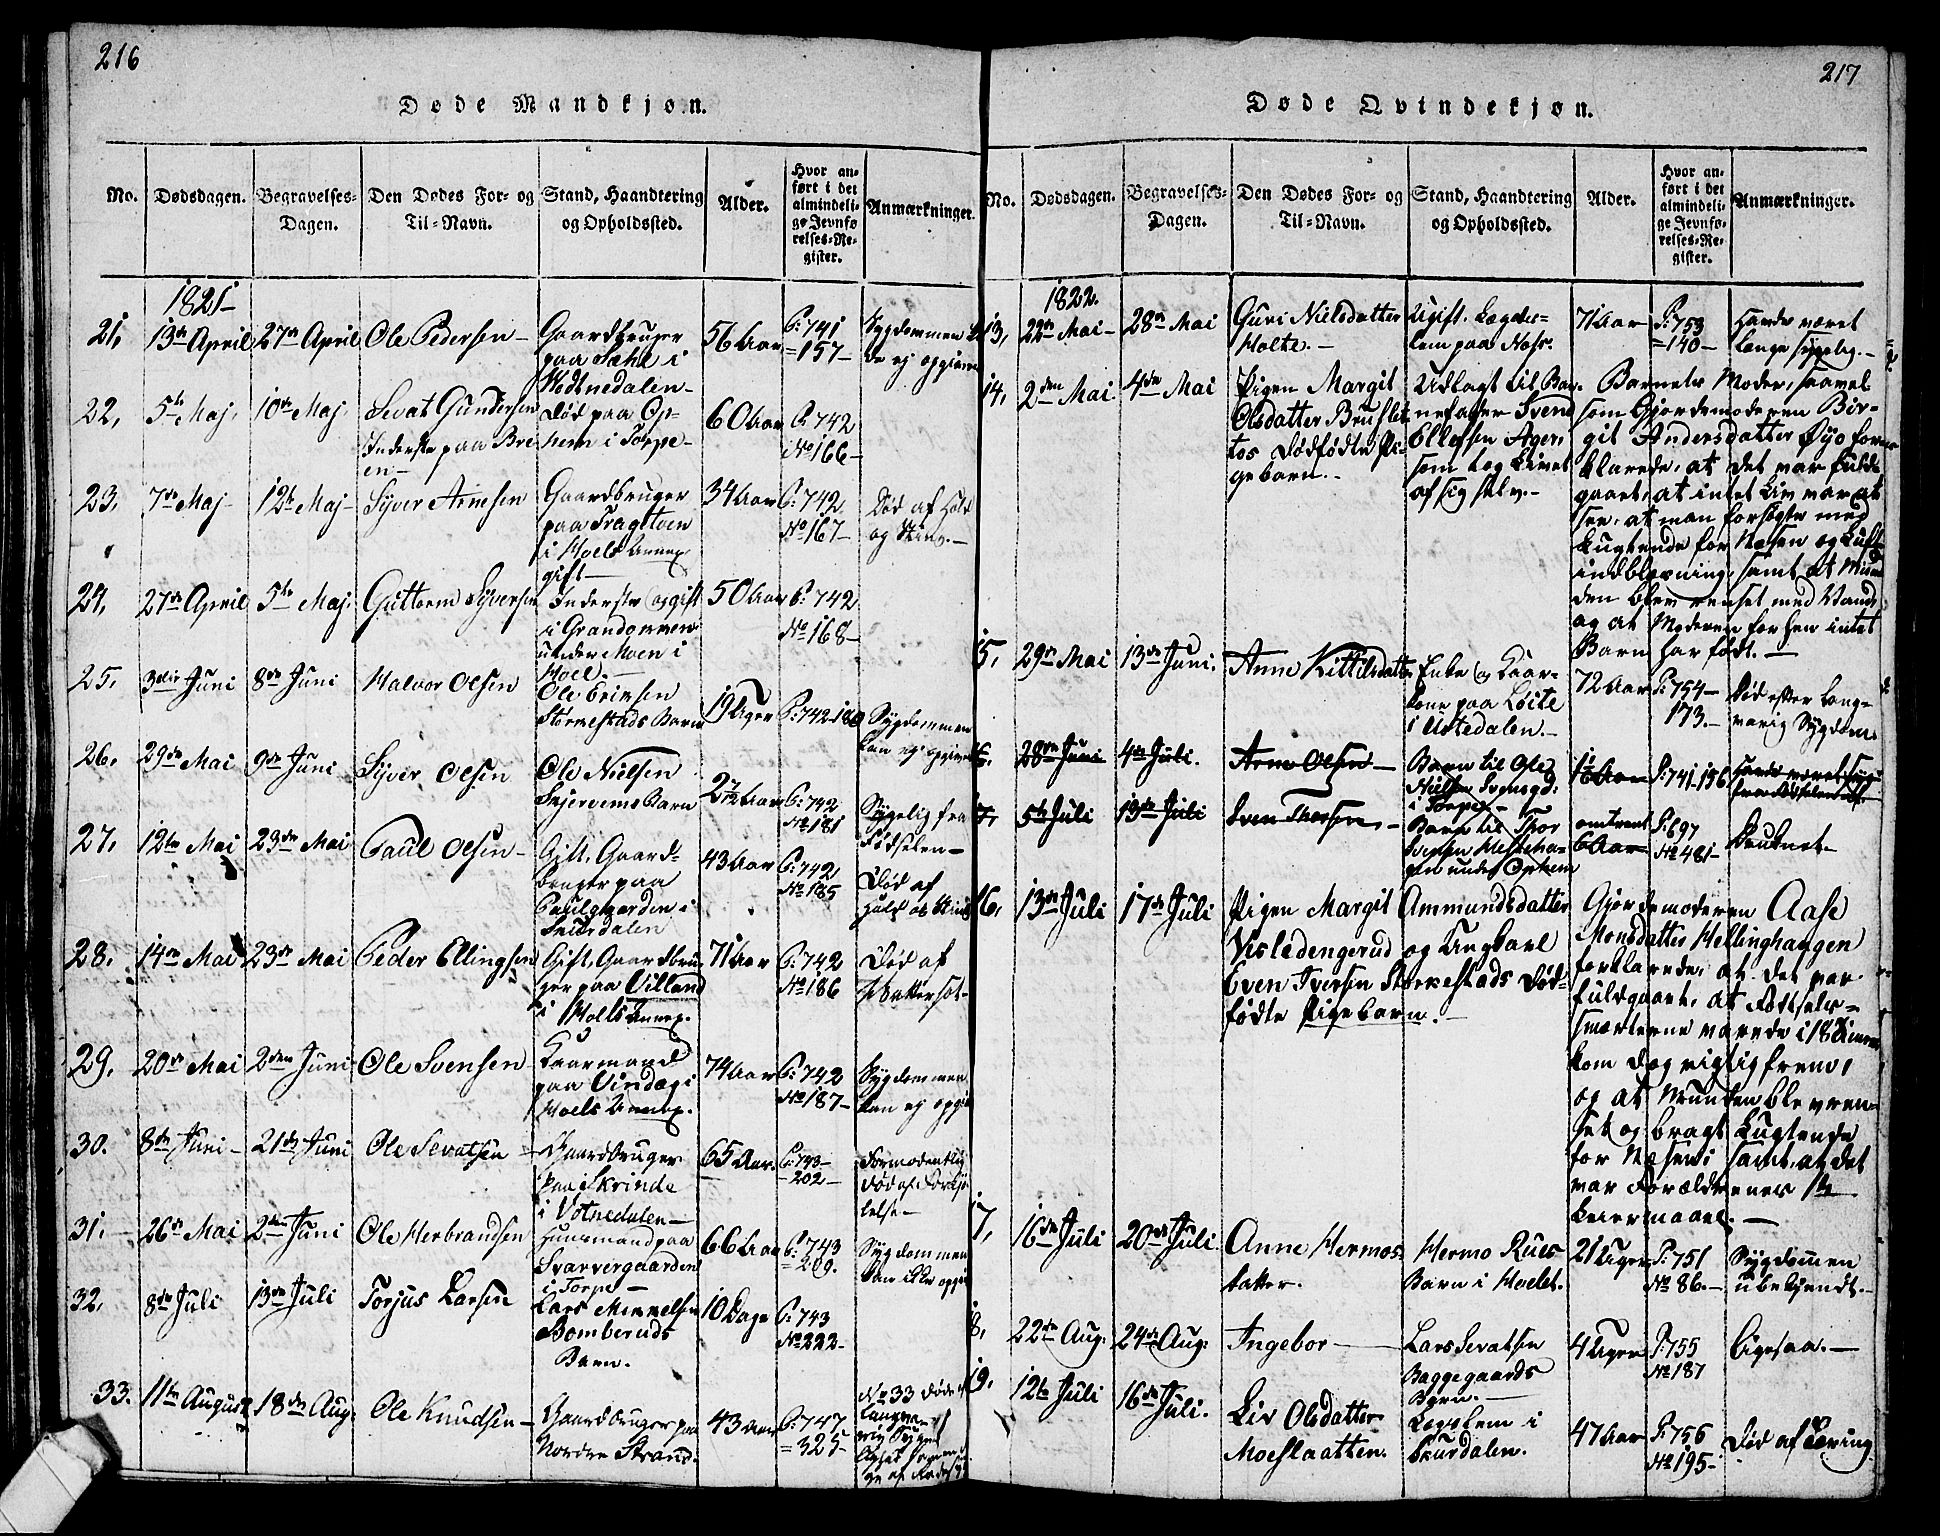 216
Døde Mandkjøn.
No.
Dødsdagen.
Begravelses-
Dagen.
Den Dødes For- og
Til-Navn.
Stand, Haandtering
og Opholdssted.
Alder.
Hvor an-
ført i det
almindeli-
ge Jevnfø-
relses-Re-
gister.
Anmærkninger.
1821-
21, 13de April 27de April Ole Pedersen-
Gaardbruger
paa
56 Aar
P: 741
=157-
Sygdommen
22, 5te Maj, 10de Maj, Sevat Gundersen
Inderste paa
Død paa Op-
hem i Torpe-
60 Aar
P: 742
No 166-
23, 7de Maj- 12te Maj- Syver Arnesen
Gaardbruger
i Hoels Annex
gift-
34 Aar
P: 742
No 167-
Død af Hold
og Sting.-
24, 27de April 5te Maj. Guttorm Syversen
Inderste og gift
under Moen i
Hoel.-
50 Aar
P: 742
No 168-
25, 3die Juni 8de Juni Halvor Olsen
Ole Eriksen
Størnestads Barn
19 Uger
P: 742-180
Sygdommen
kan ej opgives
26, 29de Mai 9de Juni Syver Olsen
Ole Nielsen
Barn
P: 742
No 181
Sygelig fra
Fødselen-
27, 12te Mai 23de Mai Paul Olsen-
Gift, Gaard-
bruger paa
Paulgaarden i
Skurdalen
43 Aar
P: 742
No 185
Død af
Hold og Sting
28, 14de Mai 23de Mai Peder Ellingsen
Gift, Gaardbru-
ger paa Villand
i Hoels Annex.
71 Aar
P: 742
No 186
Død af
29, 20de Mai 2den Juni Ole Svensen-
Kaarmand
paa Vindeg i
Hoels Annex.
74 Aar
P: 742
No 187-
Sygdommen
kan ej opgi
30. 8de Juni- 21de Juni Ole Sevatsen-
Gaardbruger
paa Skrinde
i Votnedalen-
65 Aar.
P: 743-
=202-
Formodentlig
død af Forkjø-
lelse-
31, 26de Mai 2den Juni Ole Herbrandsen
Huusmand paa
Svarvergaarden
i Torpe-
66 Aar
P: 743
=209.
Sygdommen
kan ikke opgi
32, 8de Juli 13de Juli Torjus Larsen
Lars
Bomberuds
Barn.
10 Dage
P: 743
No 222-
33. 11te August 18de Aug. Ole Knudsen-
Gaardbruger paa
Nordre Strand.
43 Aar
P: 747
=325-
No 33 døde af
langva-
rig
217
Døde Qvindekjøn.
No.
Dødsdagen.
Begravelses-
Dagen.
Den Dødes For- og
Til-Navn.
Stand, Haandtering
og Opholdssted.
Alder.
Hvor an-
ført i det
almindeli-
ge Jevnfø-
relses-Re-
gister.
Anmærkninger.
1822.
13, 22de Mai- 28de Mai
Guri Nielsdatter
Holte.-
Ugift. Lægds-
lem paa
71 Aar
P: 753
=140-
Havde været
længe sygelig.-
14, 2den Mai. 4de Mai
Pigen Margit
Olsdatter
tos Dødfødte Pi-
gebarn.-
Udlagt til Bar-
nefader Svend
Ellefsen Ager,
som tog Livet
af sig selv.-
Barnets Moder, saavel
som Gjordemoderen Bir-
git Andersdatter Øyo for-
klarede, at det var fuld-
gaaet, at intet Liv var at
see, at man forsøgte med
lugtende for Næsen og Luft-
indblæsning, samt at Mun-
den blev renset med Vand,
og at Moderen forhen intet
Barn har født.-
15, 29de Mai 13de Juni.
Anne Kittilsdatter
Enke og Kaar-
kone paa Løite
i Ustedalen.-
72 Aar
P: 754-
173.-
Død efter lang-
varig Sygdom.
28de Juni 4de Juli. Arne Olsen-
Barn til Ole
Nielsen
i Torpe-
P: 741-156
5te Juli 13de Juli Sven Thorsen,-
Barn til Thor
Svensen
omtrent
6 Aar
P: 697
No 481-
Druknet.-
16, 13de Juli 17de Juli
Pigen Margit Ammundsdatter
Visledengerud og Ungkarl
Even Iversen Størkestads Død-
fødte Pigebarn.-
Gjordemoderen Aase
Monsdatter Hellinghaugen
forklarede, at det var
fuldgaaet, at Fødsels-
smerterne varede i 18 Timer
kom dog rigtig frem,
og at Munden blev ren-
set og bragt lugtende
for Næsen, samt, at det
var Forældrenes 1te
Leiermaal.-
17, 16de Juli 20de Juli.
Anne Hermos-
datter.
Hermo Rues
Barn i Hoelet.
21 Uger
P: 751
No 86.-
Sygdommen
ubekjendt.-
18, 22de Aug: 24de Aug: Ingebor-
Lars Sevatsen
Baggegaards
Barn.-
4 Uger
P: 755
No 187
Ligesaa.-
19, 12te Juli 16de Juli.
Liv Olsdatter
Moeslaatten.
Lægdslem i
Skurdalen.
47 Aar
P: 756
No 195-
Død af Tæring